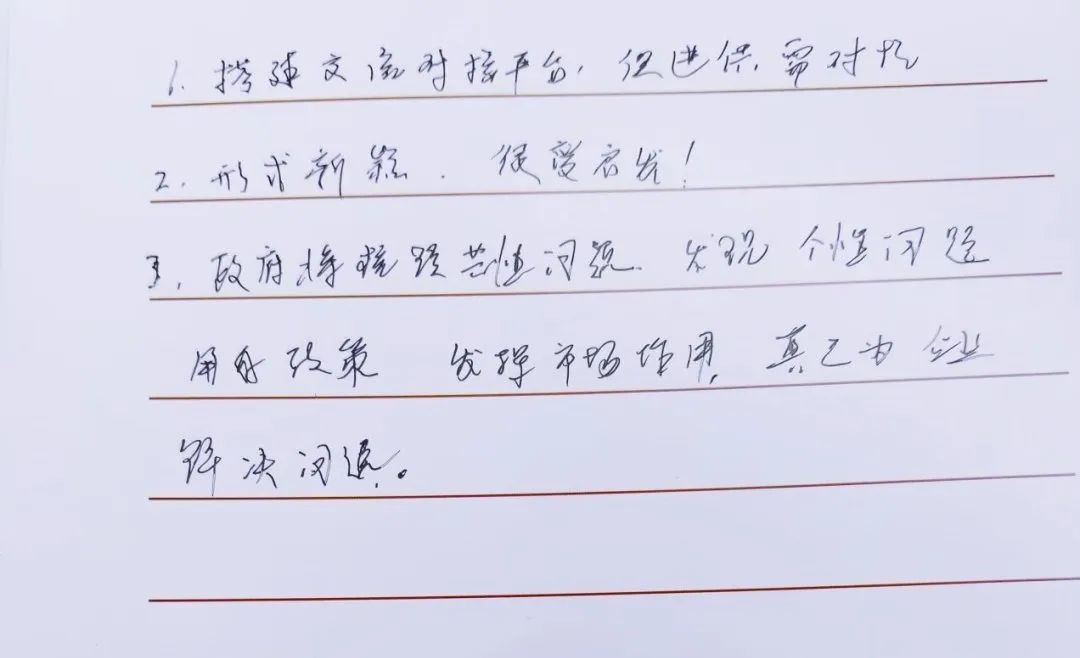 1. 搭建交流对接平台, 促进供需对接
2. 形式新颖. 很受启发!
3. 政府持续跟共性问题. 发现个性问题
用好政策 发挥市场作用, 真正为企业
解决问题。